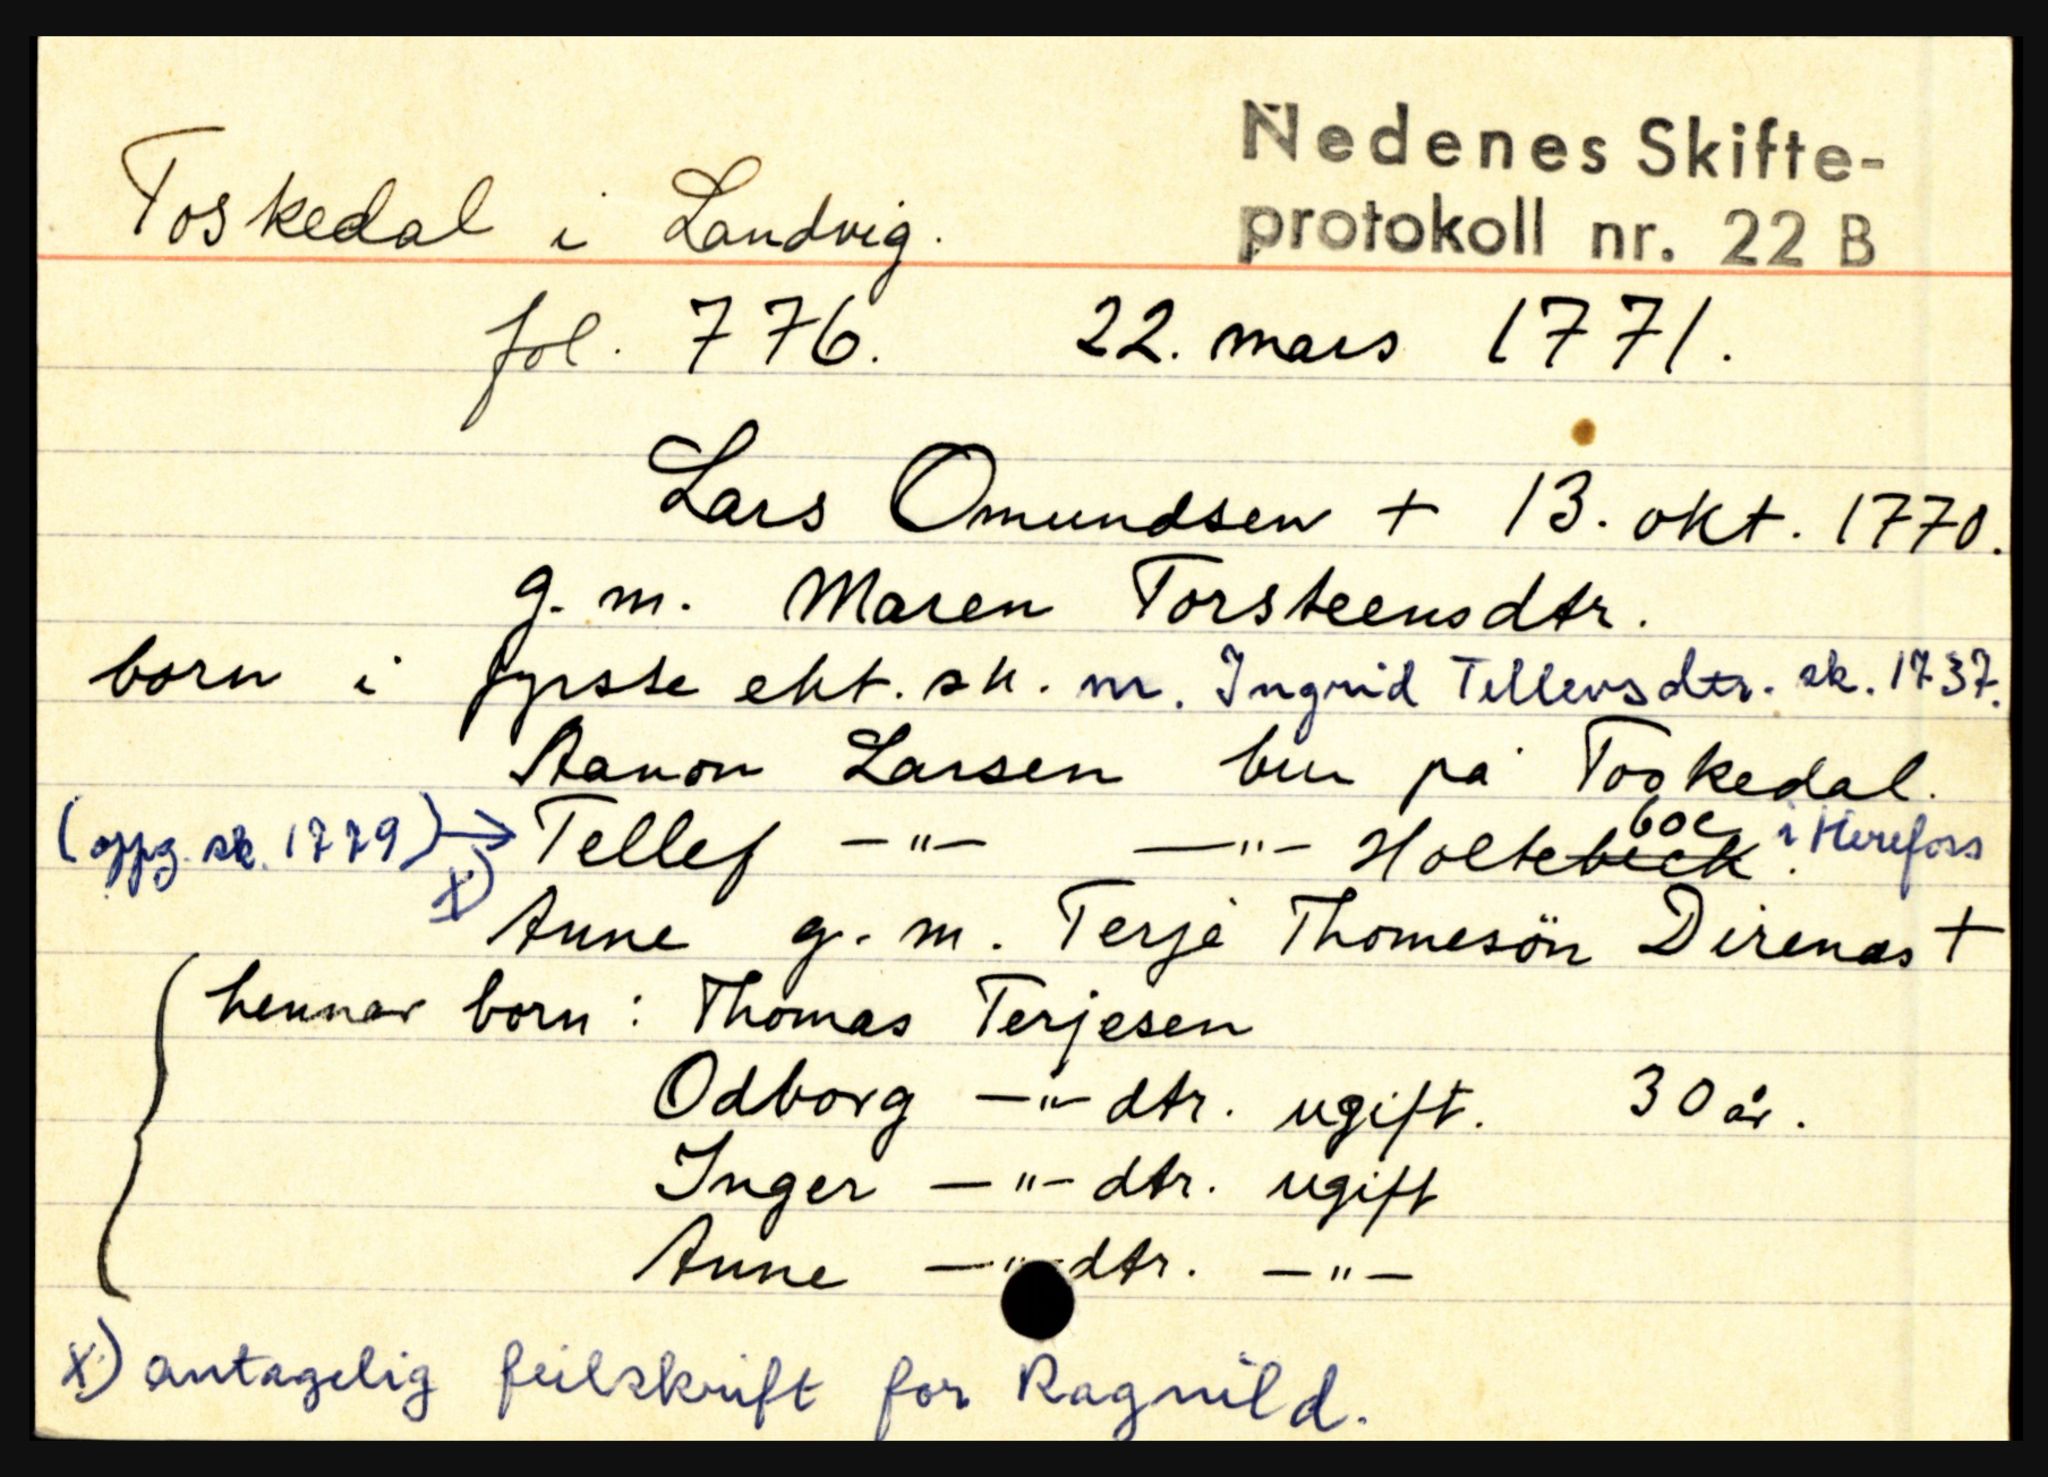 Nedenes Skifte-
protokoll nr. 22 B
Toskedal i Landvig.
fol. 776. 22. mars 1771.
Lars Omundsen + 13. okt. 1770.
g. m. Maren Torsteensdtr.
born i fyrste ekt. sk. m. Ingrid Tellevsdtr. sk. 1737.
Aanon Larsen bur på Toskedal.
(oppg. sk. 1779) → Tellef —"— —"— Holtebeck boe i Herefoss.
x) Anne g. m. Terje Thomesön Direnæs +
hennar born: Thomas Terjesen
Odborg —"— dtr. ugift. 30 år.
Inger —"— dtr. ugift
Anne —"— dtr. —"—
x) antagelig feilskrift for Ragnild.